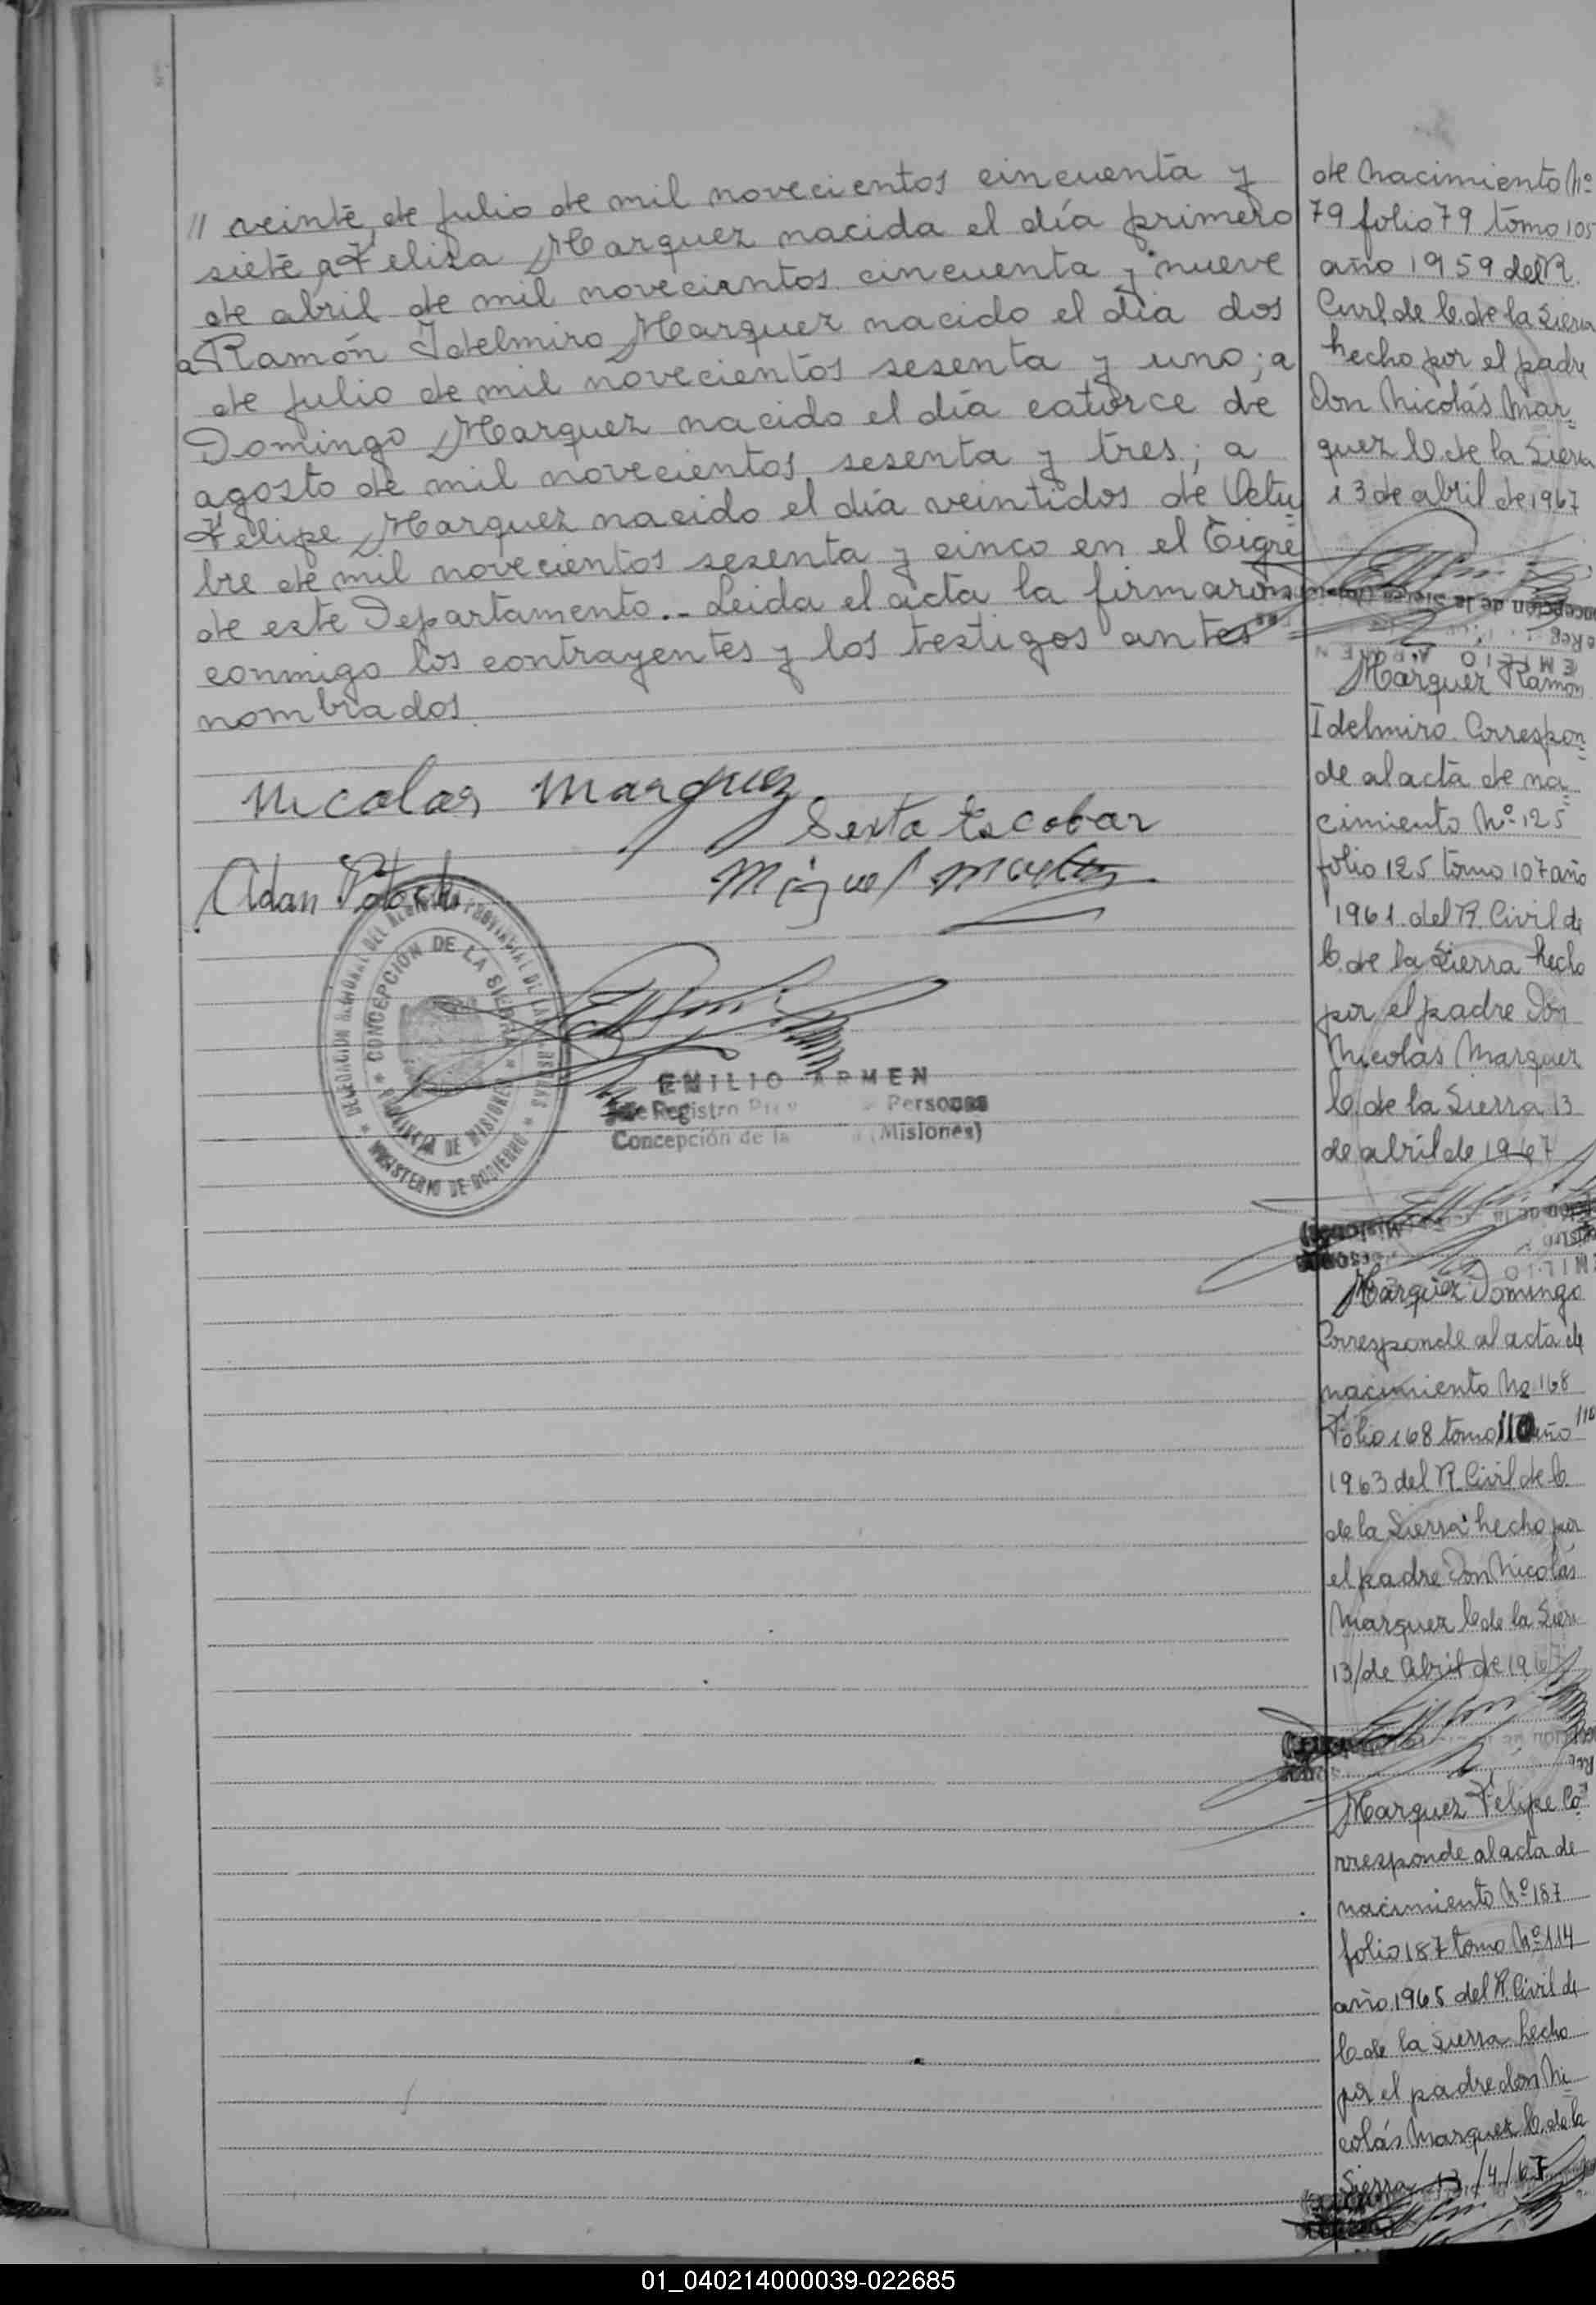 // veinte, de julio de mil novecientos cincuenta y
siete, a Felisa Marquez nacida el día primero
de abril de mil novecientos cincuenta y nueve
a Ramón Idelmiro Marquez nacido el día dos
de julio de mil novecientos sesenta y uno; a
Domingo Marquez nacido el día catorce de
agosto de mil novecientos sesenta y tres; a
Felipe Marquez nacido el día veintidos de Octu
bre de mil novecientos sesenta y cinco en el Tigre
de este Departamento.- Leida el acta la firmaron
conmigo los contrayentes y los testigos antes
nombrados
Nicolas Marquez
Sexta Escobar
Adan
Miguel
DELEGACION REGIONAL DEL REGISTRO PROVINCIAL DE LAS PERSONAS
MINISTERIO DE GOBIERNO
CONCEPCIÓN DE LA SIERRA
PROVINCIA DE MISIONES
EMILIO ARMEN
Jefe Registro Prov Personas
Concepción de la (Misiones)
de nacimiento Nº
79 folio 79 tomo 105
año 1959 del R.
Civil de C. de la Sierra
hecho por el padre
Don Nicolás Mar
quez C. de la Sierra
13 de abril de 1967
Marquez Ramón
Idelmiro. Correspon
de al acta de na
cimiento Nº 125
folio 125 tomo 107 año
1961 del R. Civil de
C. de la Sierra hecho
por el padre Don
Nicolas Marquez
C. de la Sierra 13
de abril de 1967
Marquez Domingo
Corresponde al acta de
nacimiento No 168
Folio 168 tomo 110 año 110
1963 del R. Civil de C.
de la Sierra hecho por
el padre Don Nicolás
Marquez C. de la Sierra
13/de Abril de 1967
Marquez Felipe Co
rresponde al acta de
nacimiento Nº 187
folio 187 tomo Nº 114
año 1965 del R. Civil de
C. de la Sierra hecho
por el padre don Ni
colás Marquez C. de la
Sierra 13/4/67
01_040214000039-022685